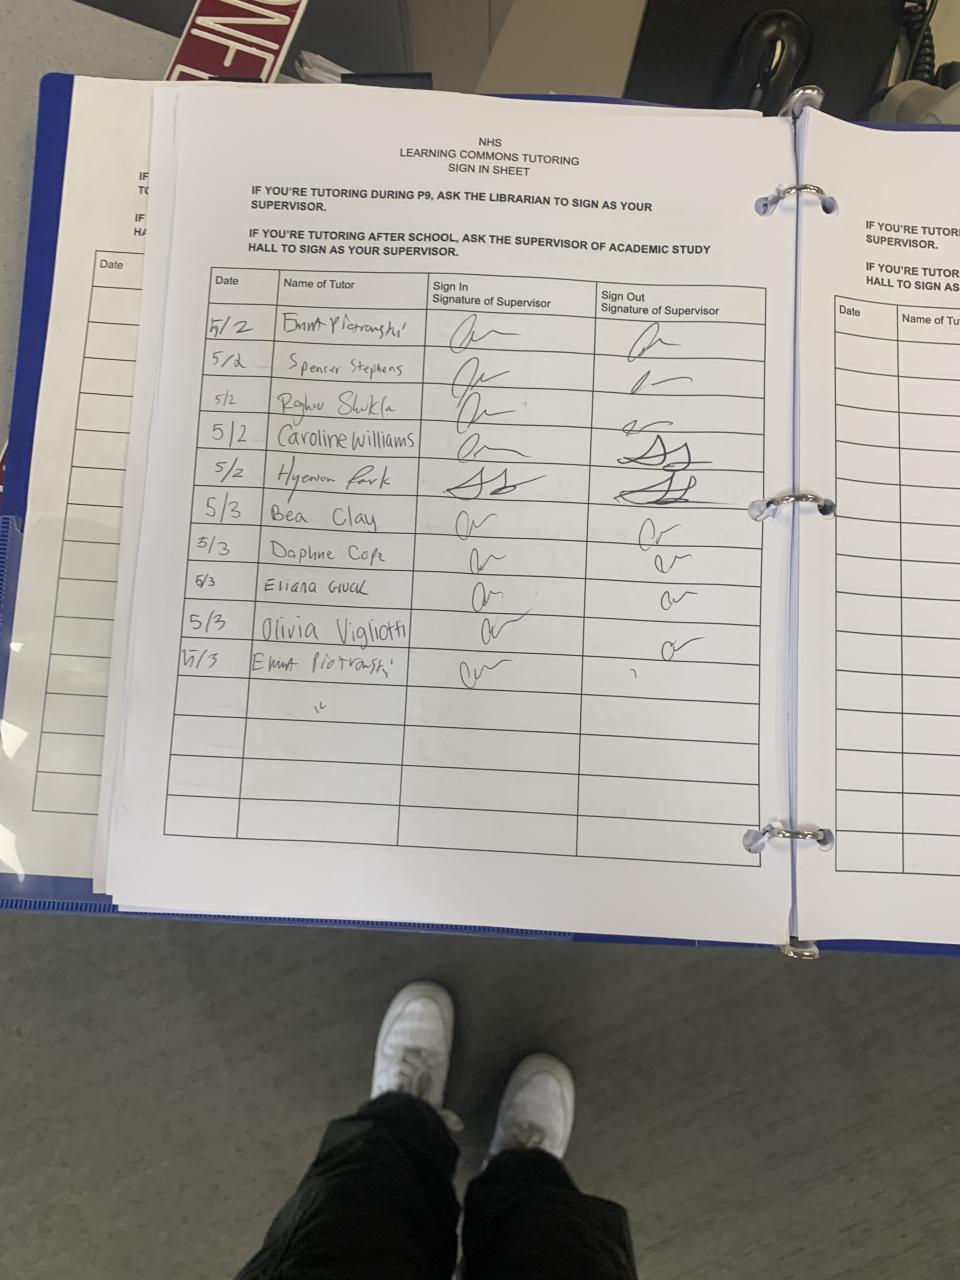 ONFE
NHS
LEARNING COMMONS TUTORING
SIGN IN SHEET
IF YOU'RE TUTORING DURING P9, ASK THE LIBRARIAN TO SIGN AS YOUR
SUPERVISOR.
IF YOU'RE TUTORING AFTER SCHOOL, ASK THE SUPERVISOR OF ACADEMIC STUDY
HALL TO SIGN AS YOUR SUPERVISOR.
Date Name of Tutor Sign In Sign Out
Signature of Supervisor Signature of Supervisor
5/2 Piotrowski
5/2 Spencer Stephens
5/2 Shukla
5/2 Caroline Williams
5/2 Hyewon Park
5/3 Bea Clay
5/3 Daphne Cope
5/3 Eliana Gluck
5/3 Olivia Vigliotti
5/3 Piotrowski
IF
TO
IF
HA
Date
IF YOU'RE TUTOR
SUPERVISOR.
IF YOU'RE TUTOR
HALL TO SIGN AS
Date Name of Tu